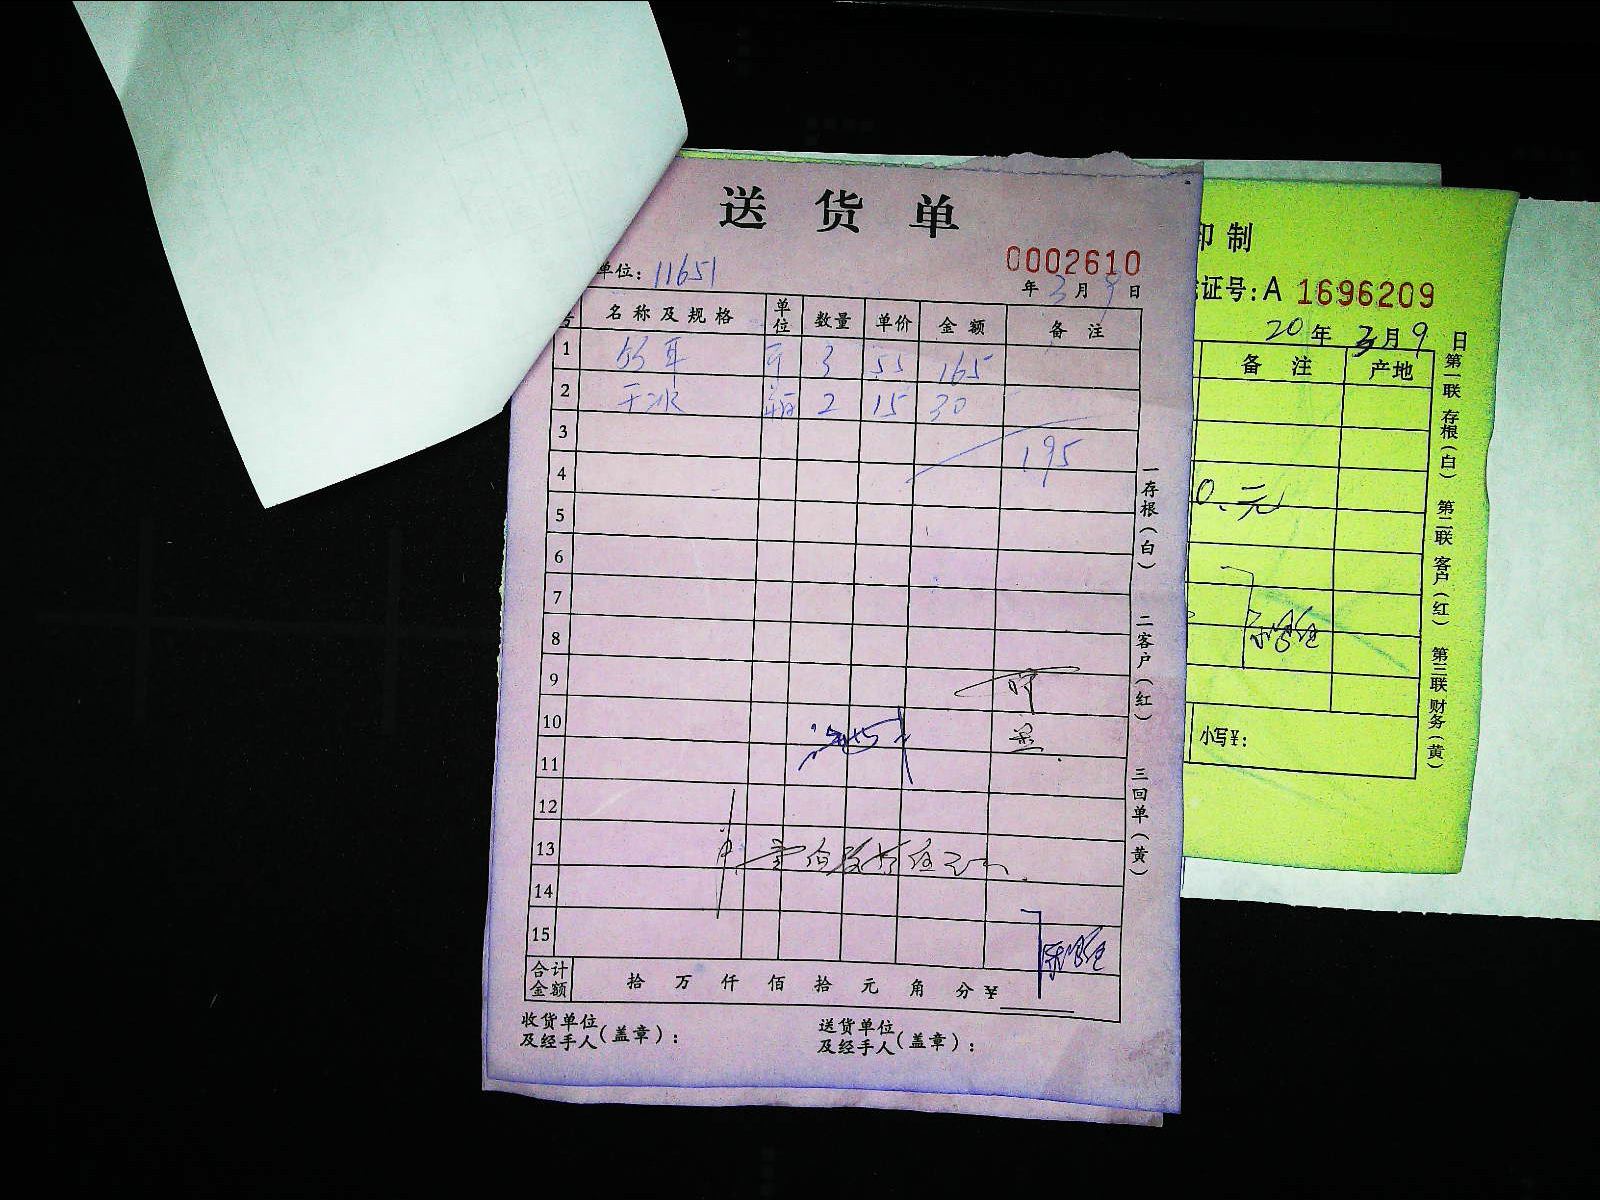 送货单
0002610
单位：11651
年3月9日
名称及规格 单位 数量 单价 金额 备注
1 3 55 165
2 干冰 箱 2 15 30
3 195
4
5
6
7
8
9
10
11
12
13
14
15
合计金额 拾 万 仟 佰 拾 元 角 分 ¥
收货单位及经手人（盖章）：
送货单位及经手人（盖章）：
一存根（白） 二客户（红） 三回单（黄）
印制
证号：A 1696209
20年3月9日
备注 产地
0.元
小写¥：
第一联 存根（白） 第二联 客户（红） 第三联 财务（黄）